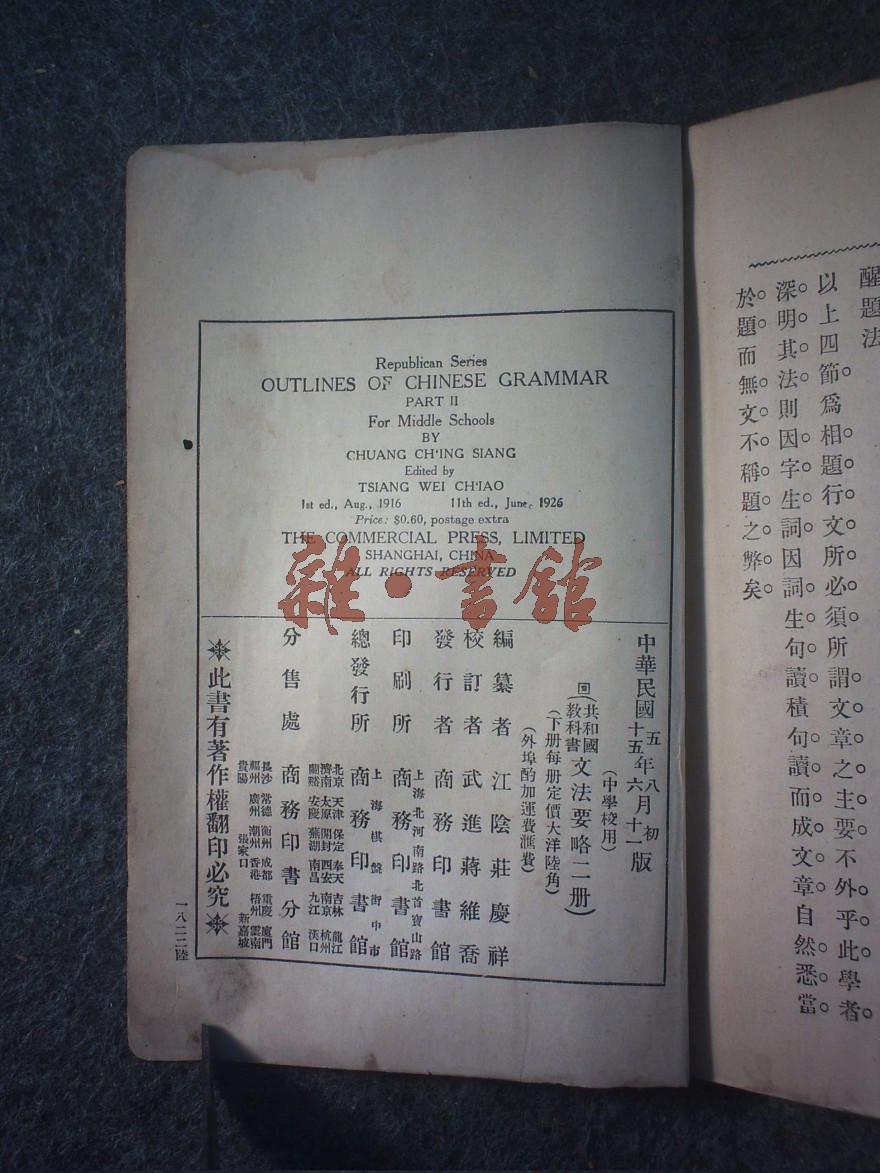 醒題法
以上四節爲相題行文所必須所謂文章之主要不外乎此學者
深明其法則因字生詞因詞生句讀積句讀而成文章自然悉當
於題而無文不稱題之弊矣
Republican Series
OUTLINES OF CHINESE GRAMMAR
PART II
For Middle Schools
BY
CHUANG CH'ING SIANG
Edited by
TSIANG WEI CH'IAO
1st ed., Aug., 1916 11th ed., June, 1926
Price: $0.60, postage extra
THE COMMERCIAL PRESS, LIMITED
SHANGHAI, CHINA
ALL RIGHTS RESERVED
雜·書館
中華民國五年八月初版
十五年六月十一版
(中學校用)
共和國教科書文法要略二册)
(下册每册定價大洋陸角)
(外埠酌加運費滙費)
編纂者 江陰莊慶祥
校訂者 武進蔣維喬
發行者 商務印書館
印刷所 上海北河南路北首寶山路 商務印書館
總發行所 上海棋盤街中市 商務印書館
分售處 商務印書分館
北京 天津 保定 奉天 吉林 龍江
濟南 太原 開封 西安 南京 杭州
蘭谿 安慶 蕪湖 南昌 九江 漢口
長沙 常德 衡州 成都 重慶 廈門
福州 廣州 潮州 香港 梧州 雲南
貴陽 張家口 新嘉坡
此書有著作權翻印必究
一八二二陸